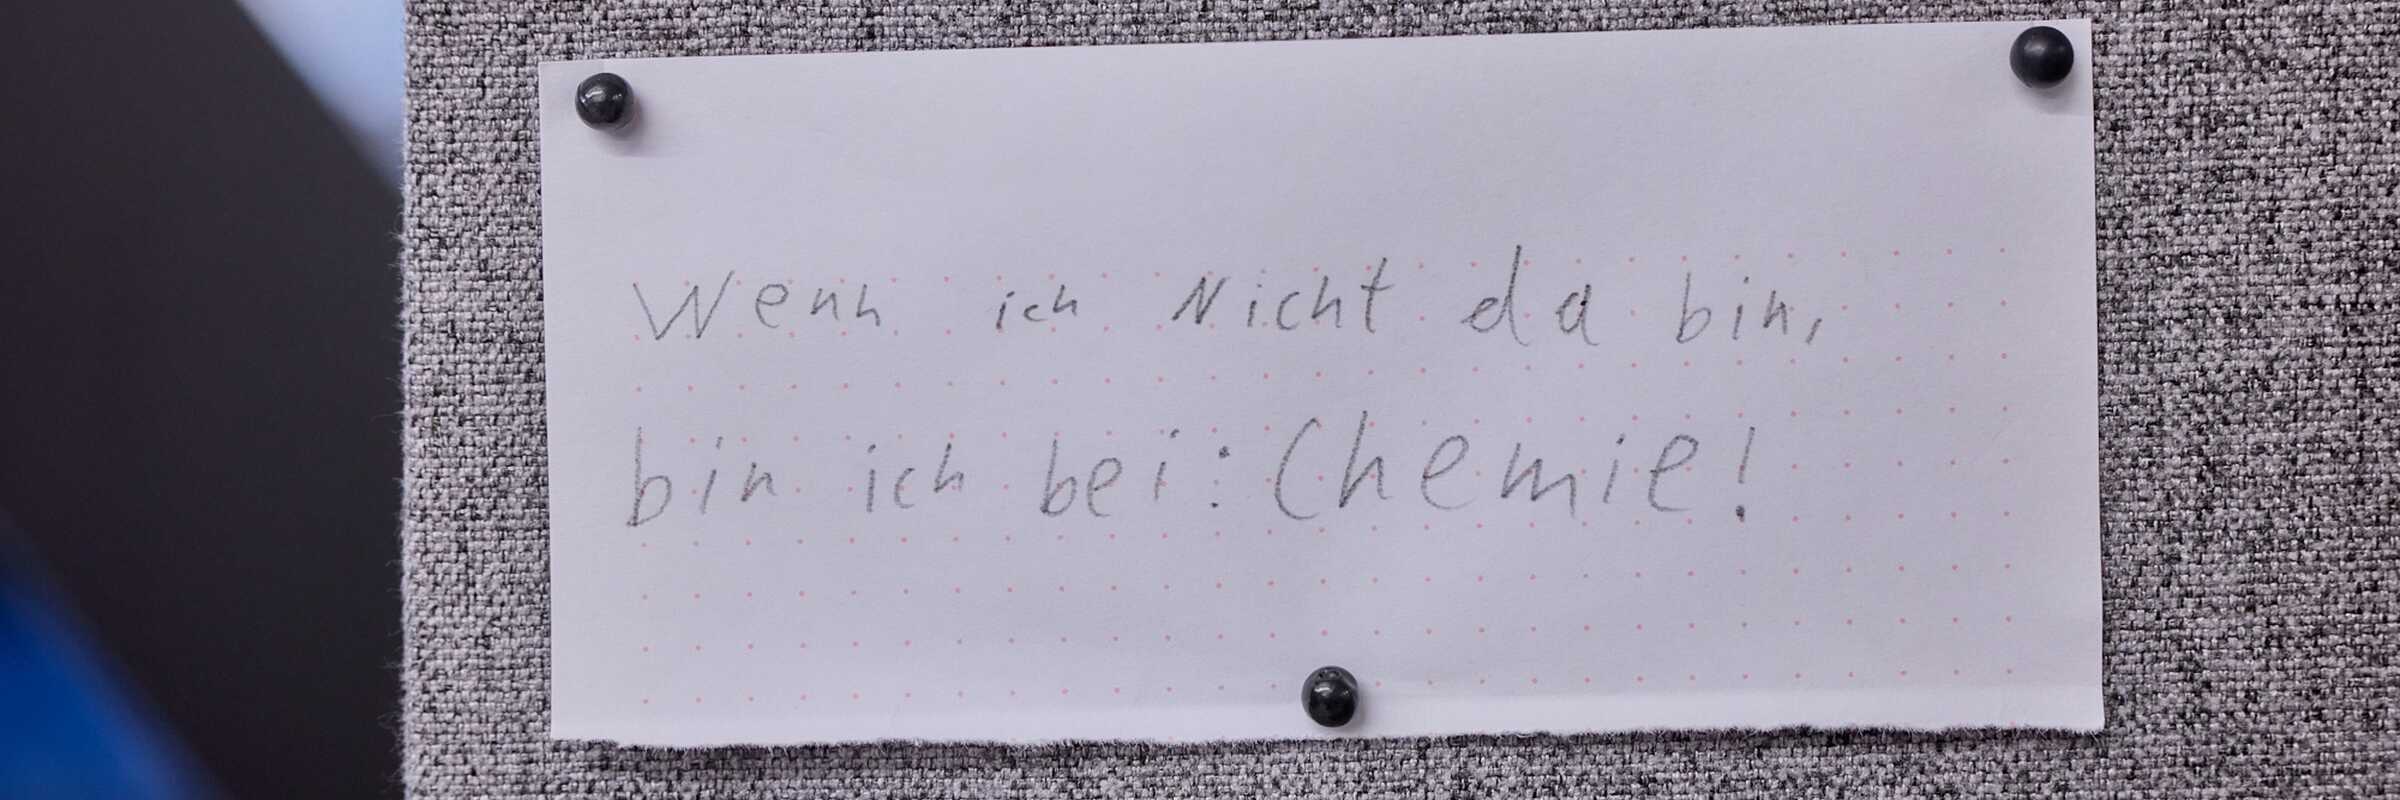 Wenn ich Nicht da bin,
bin ich bei: Chemie!